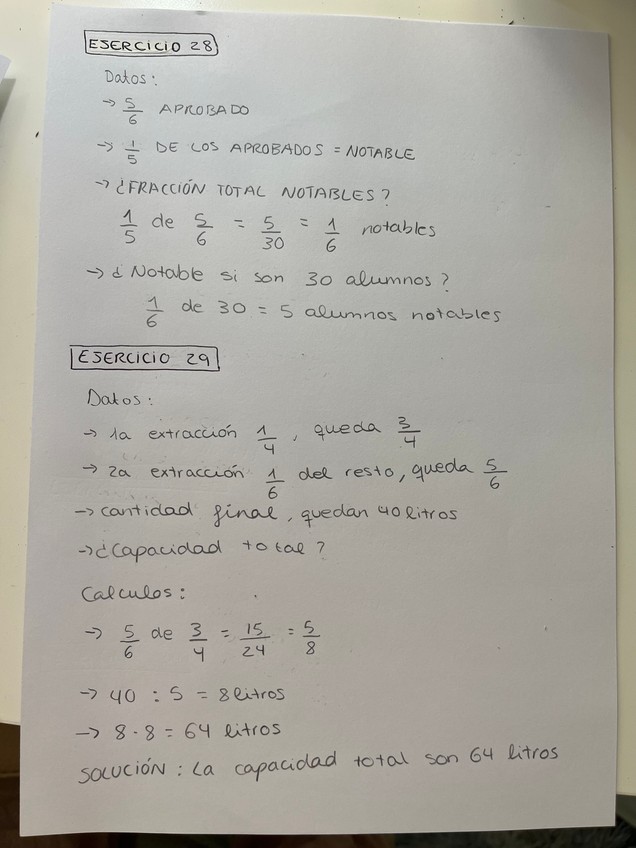 EJERCICIO 28
Datos:
→ 5/6 APROBADO
→ 1/5 DE LOS APROBADOS = NOTABLE
→ ¿FRACCIÓN TOTAL NOTABLES?
1/5 de 5/6 = 5/30 = 1/6 notables
→ ¿Notable si son 30 alumnos?
1/6 de 30 = 5 alumnos notables
EJERCICIO 29
Datos:
→ 1a extracción 1/4, queda 3/4
→ 2a extracción 1/6 del resto, queda 5/6
→ cantidad final, quedan 40 litros
→ ¿Capacidad total?
Calculos:
→ 5/6 de 3/4 = 15/24 = 5/8
→ 40 : 5 = 8 litros
→ 8 · 8 = 64 litros
SOLUCIÓN: La capacidad total son 64 litros